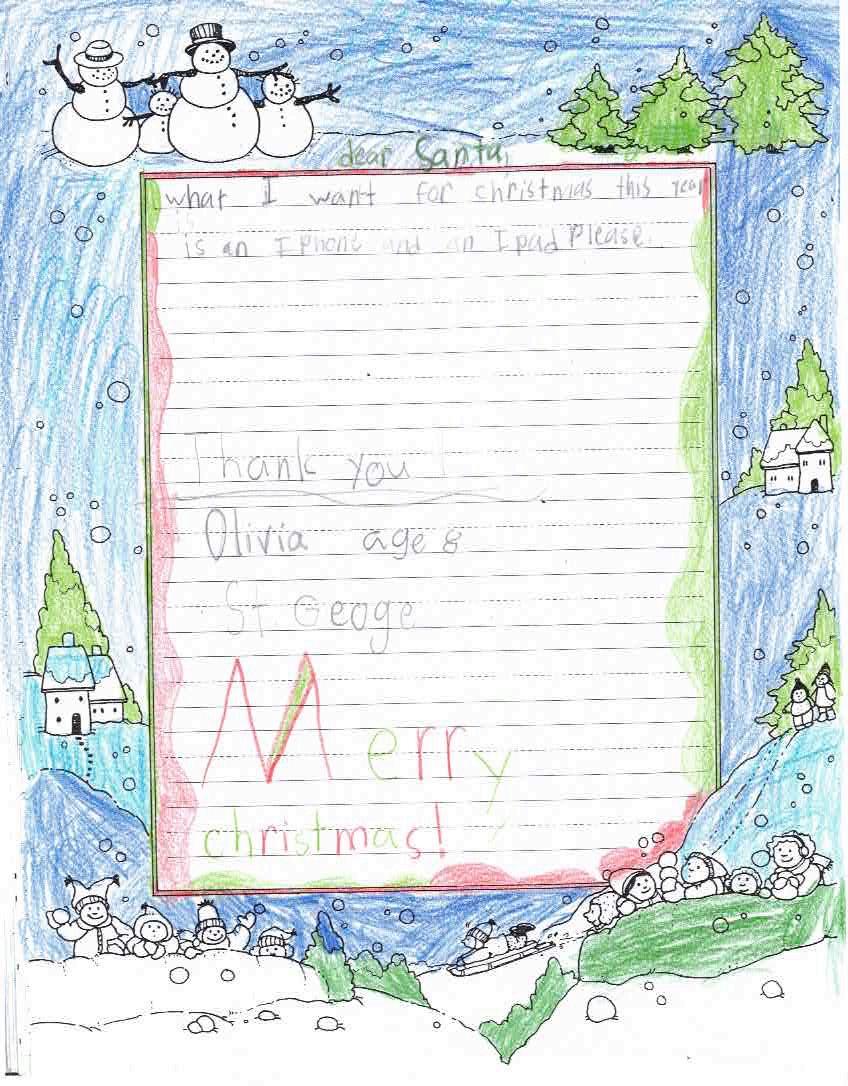 dear Santa,
what I want for christmas this year
is
is an I Phone and an I pad Please.
Thank you!
Olivia age 8
St. Geoge
Merry
christmas!